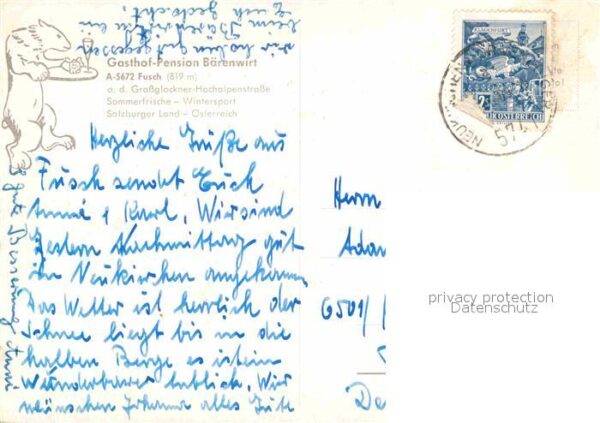 wir haben gut gegessen
beim Bärenwirt an
Euch gedacht.
Gasthof-Pension Bärenwirt
A-5672 Fusch (819 m)
a. d. Großglockner-Hochalpenstraße
Sommerfrische – Wintersport
Salzburger Land – Österreich
Herzliche Grüße aus
Fusch sendet Euch
Anni & Karl, Wir sind
gestern Nachmittag gut
in Neukirchen angekommen
Das Wetter ist herrlich der
Schnee liegt bis in die
halben Berge es ist ein
Wunderbarer Anblick, Wir
wünschen Johanna alles Gute
& gute Besserung Anni
KLAGENFURT
2
REPUBLIK ÖSTERREICH
NEUKIRCHEN
5741
Herrn
Adam
6501/
De
privacy protection
Datenschutz